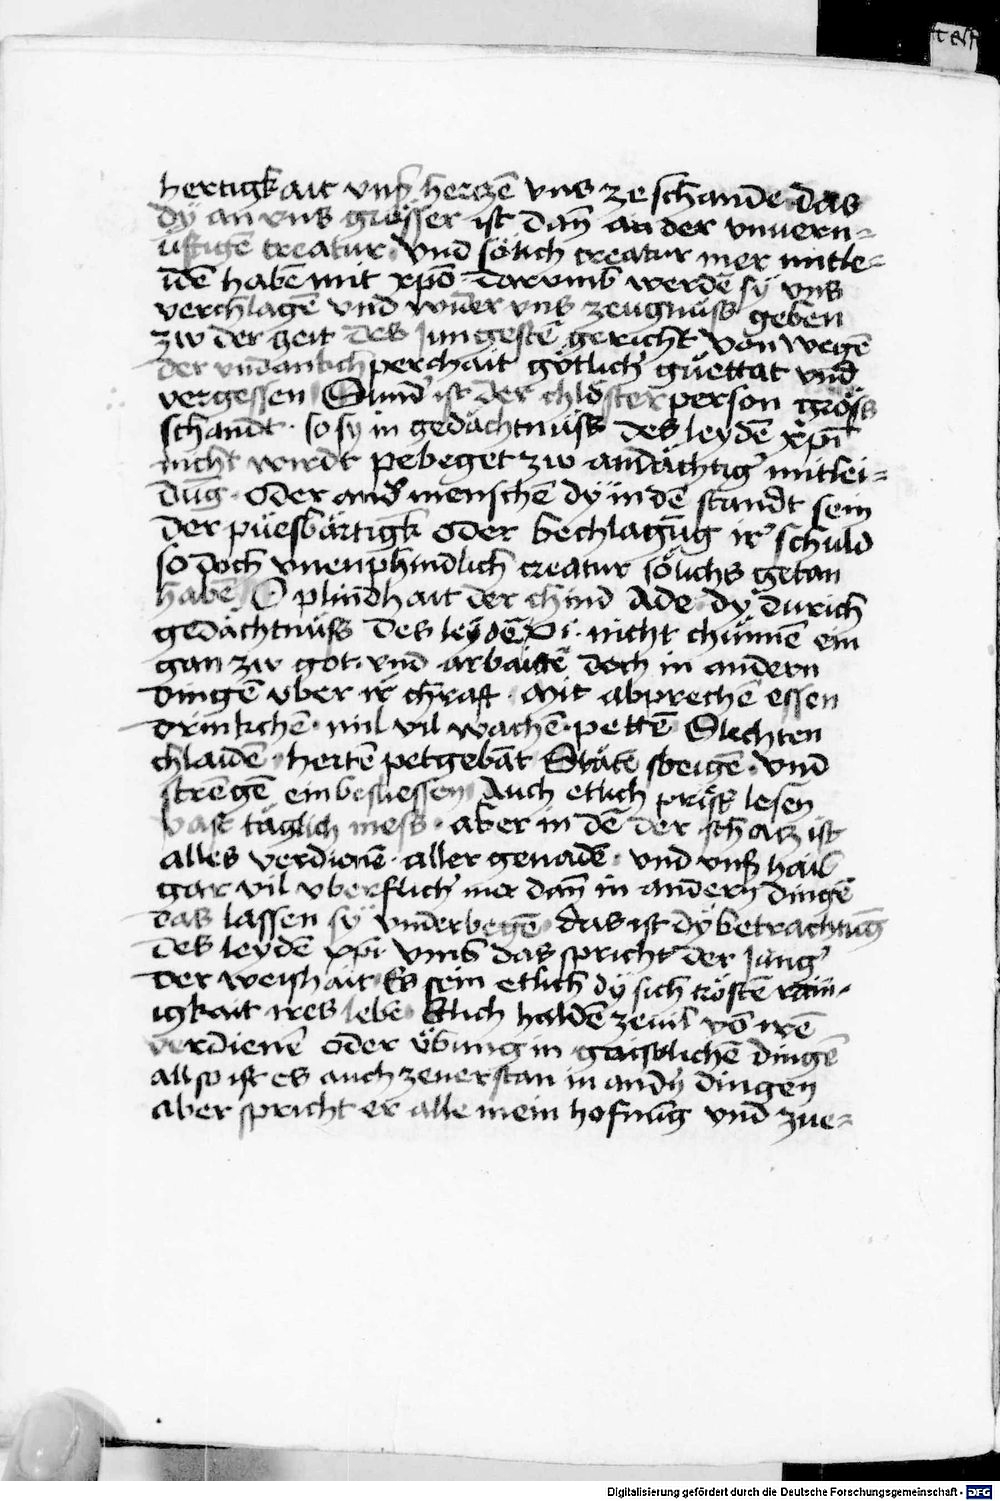 hertigkait vnsˀ herczē vns ze schande · das
dÿ an vns grösser ist dañ an der vnuern=
üftigē creatur · vnd sölich creatur mer mitle=
idē habē mit xp̄o · darumb werdē sÿ vns
verchlagē vnd wid̾er vns zeugnüss geben
zw der zeit des jungestē gericht von wegē
der vndankchperchait götlicher güettat vnd
vergessen Sund̾ ist der chlosterperson gröss
schandt · so sy in gedächtnüss des leydē xp̄i
nicht wirdt pebeget zw andächtig̾ mitlei=
dūg · oder and̾ menschē dÿ in dē standt sein
der püesbärtigk oder bechlagūg ir̾ schuld
so doch vnenphindlich creatur sölichs getan
habē O plindhait der chind Ade dÿ durich
gedächtnüss des leydē xp̄i · nicht chünnē ein
gan zw got · vnd arbaittē doch in andern
dingē vber ir chraft · Mit abprechē essen
drinkchē · mit vil wachē · pettē Slechten
chlaidē · hertē petgebāt Stätē sbeigē · vnd
strēgē einbesliessen Auch etlich priss lesen
vast täglich mess · aber in dē der schatz ist
alles verdienē · aller genadē · vnd vnsˀ hail
gar vil vberflich̾ mer dañ in andern dingē
das lassen sÿ vnderbegē das ist dÿ betrachtūg
des leydē xp̄i Vmb das spricht der jung̾
der weishait Es sein etlich dÿ sich tröstē rain=
igkait ires lebē Etlich haldē zeuil võ irē
verdienē oder übung in gaistlichē dingē
all so ist es auch zeuerstan in andn̄ dingen
aber spricht er alle mein hofnūg vnd zue=
Digitalisierung gefördert durch die Deutsche Forschungsgemeinschaft - DFG